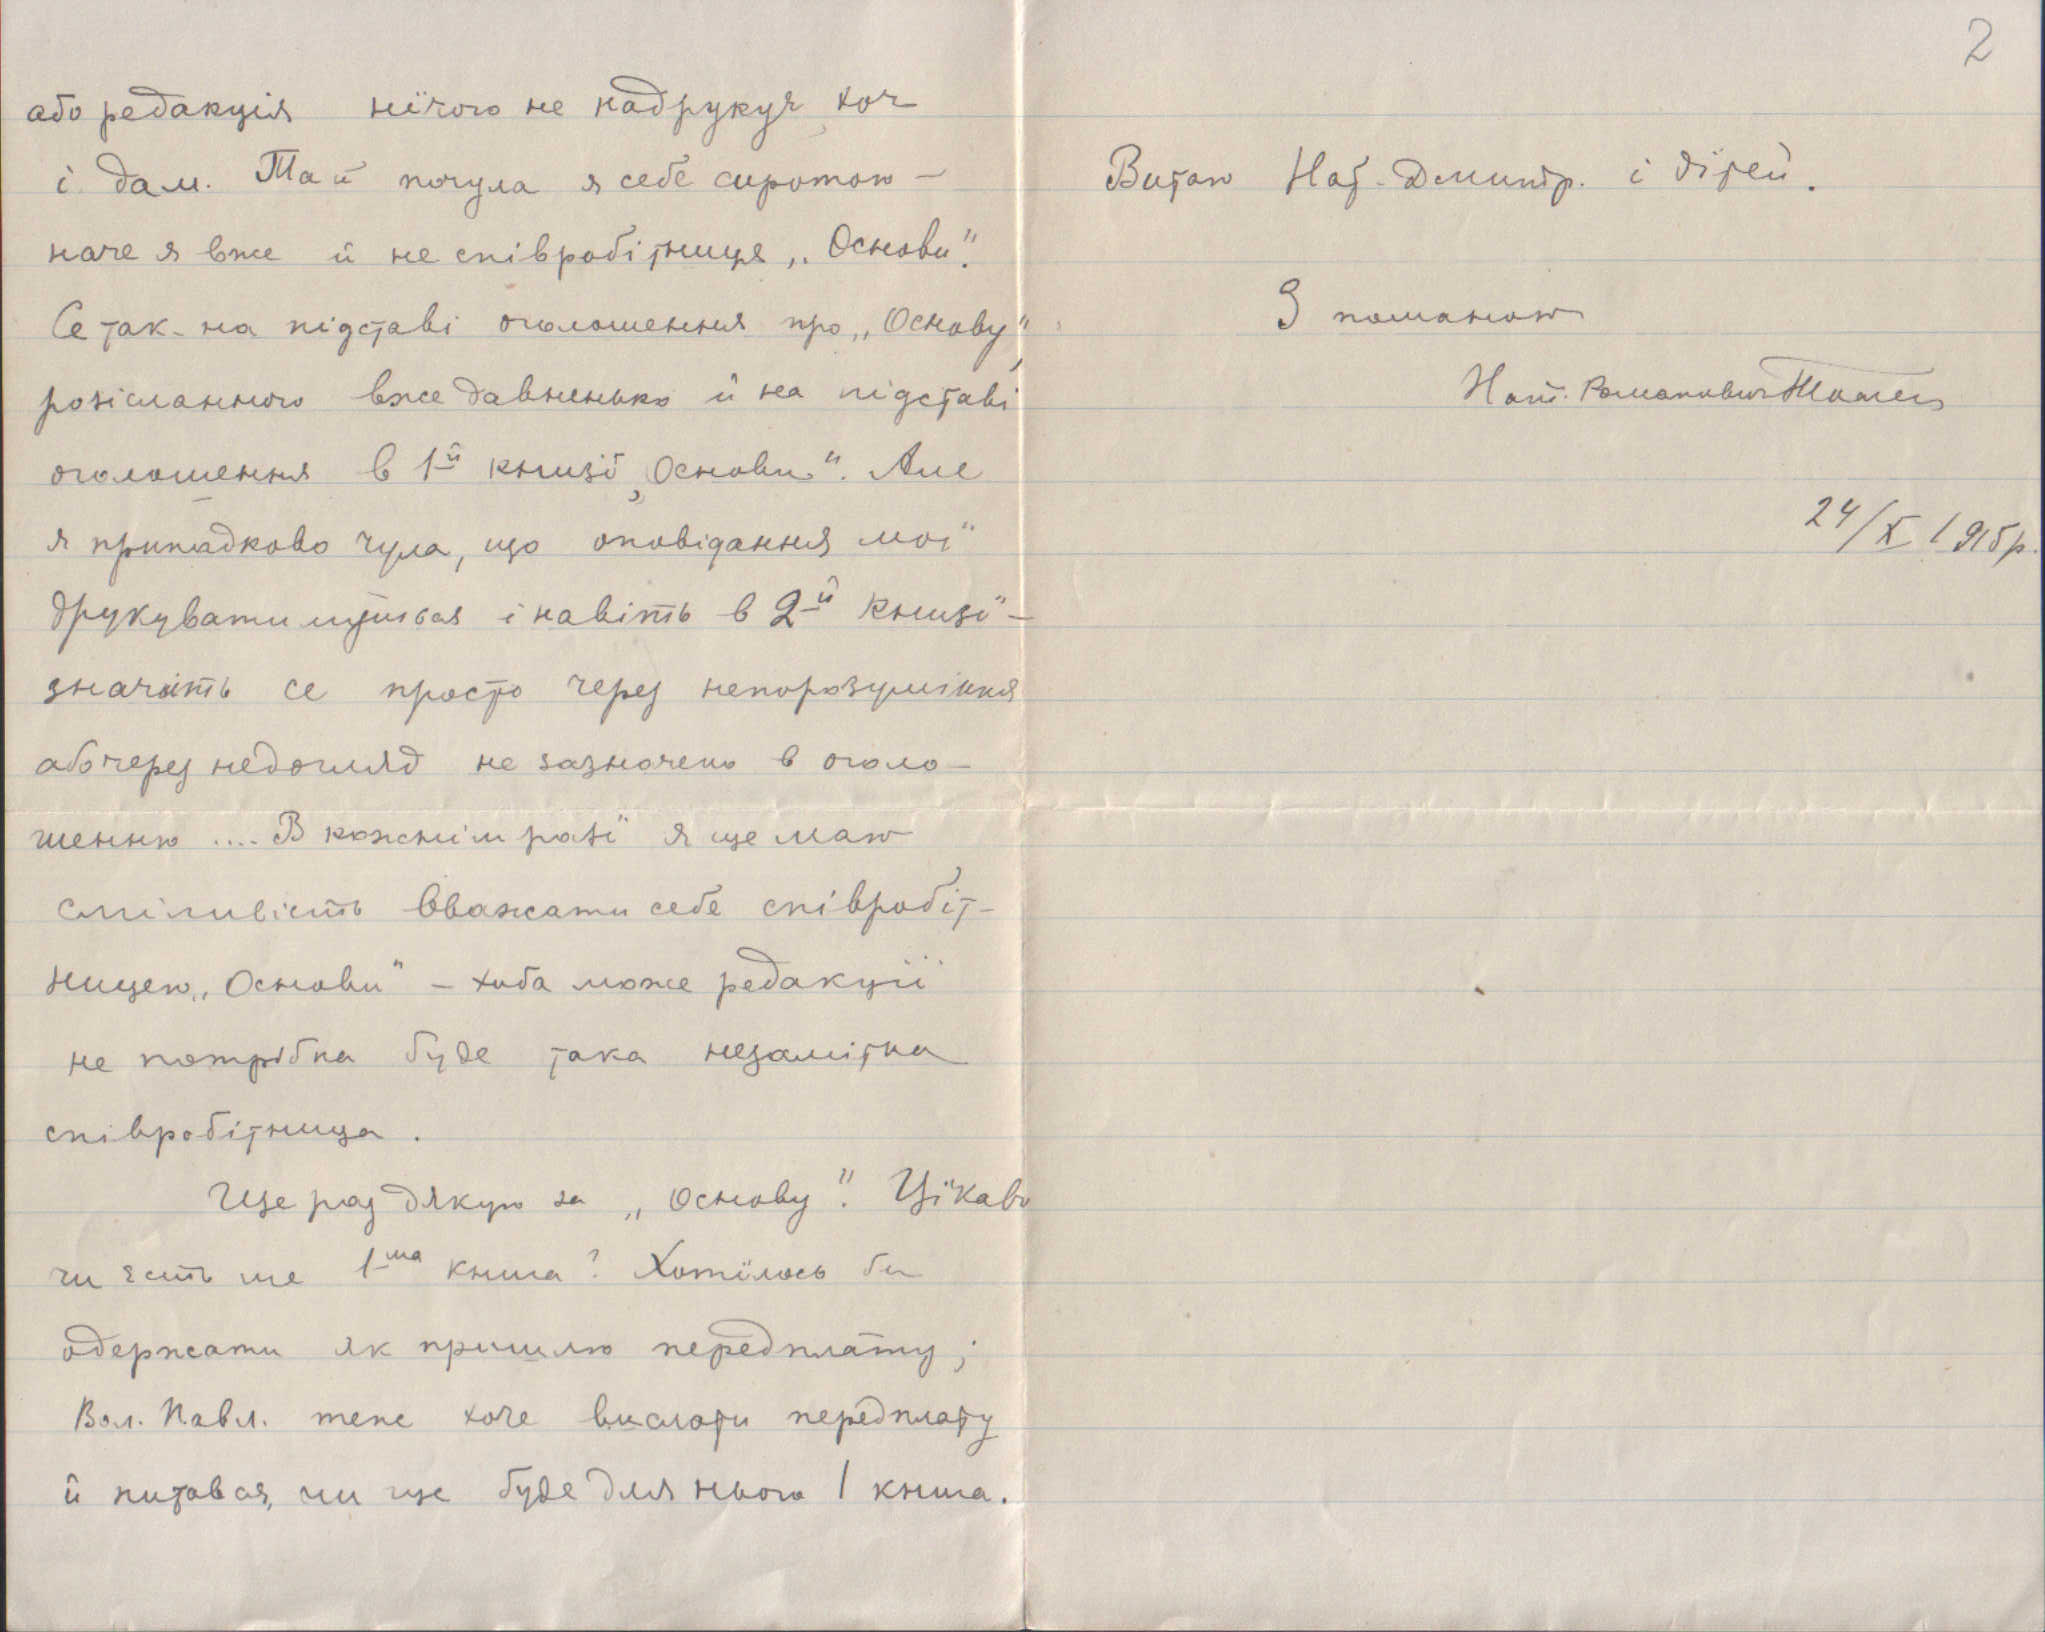 або редакція нїчого не надрукує хоч
і дам. Тай почула я себе сиротою –
наче я вже й не співробітниця „Основи".
Се так - на підставі оголошення про „Основу",
розісланного вже давненько й на підставі
оголошення в 1й книзї „Основи". Але
я припадково чула, що оповідання мої
друкуватимуться і навіть в 2й книзї –
значить се просто через непорозуміння
або через недогляд не зазначено в оголо-
шенню .... В кожнім разї я ще маю
сміливість вважати себе співробіт-
ницею „Основи" – хиба може редакциї
не потрібна буде така незамітна
співробітница.
Ще раз дякую за „Основу". Цїкаво
чи єсть ще 1ша книга? Хотїлось би
одержати як пришлю передплату;
Вол. Павл. теж хоче вислати передплату
й питався, чи ще буде для нього 1 книга.
2
Витаю Нат. Дмитр. і дїтей.
З пошаною
Нат. Романович
24/X 1915р.